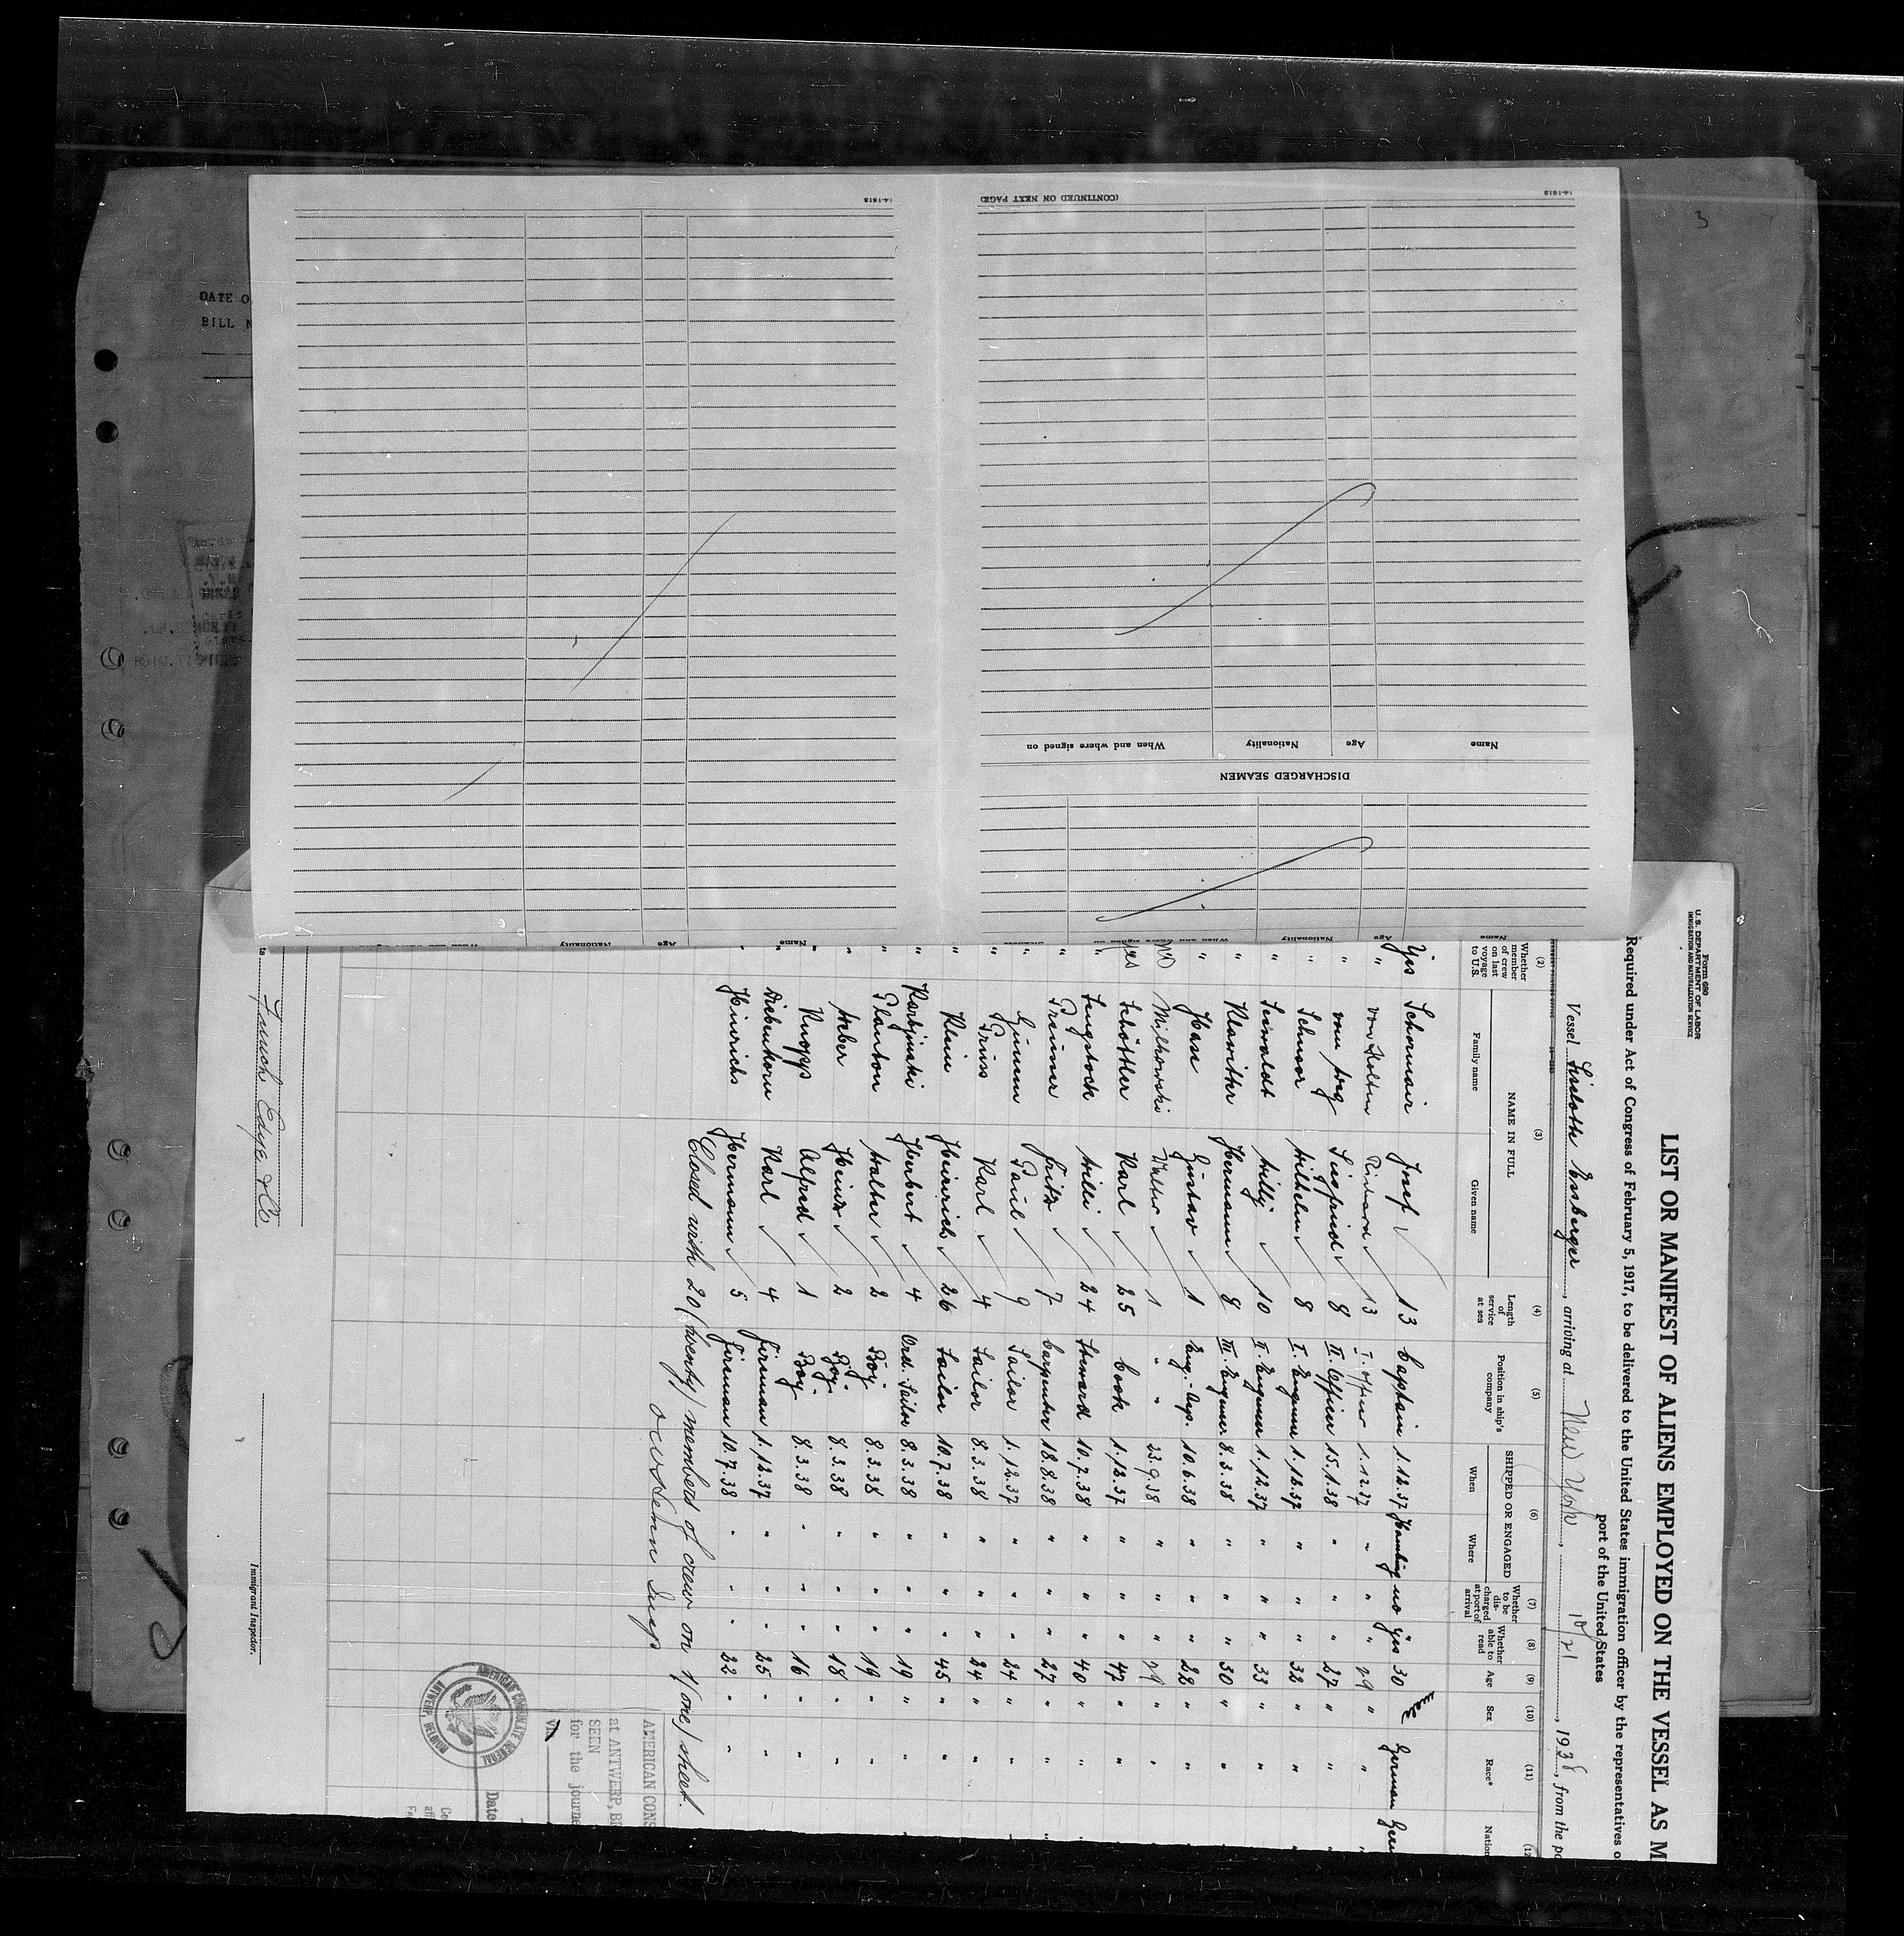 DATE O
BILL N
14-1613
(CONTINUED ON NEXT PAGE)
14-1613
Name Age Nationality When and where signed on
DISCHARGED SEAMEN
Name Age Nationality
Name Age Nationality When and where signed on
Form 680
U.S. DEPARTMENT OF LABOR
IMMIGRATION AND NATURALIZATION SERVICE
LIST OR MANIFEST OF ALIENS EMPLOYED ON THE VESSEL AS M
Required under Act of Congress of February 5, 1917, to be delivered to the United States immigration officer by the representatives o
port of the United States
Vessel Liselotte Essberger, arriving at New York, 10/21, 1938, from the po
(2) (3) (4) (5) (6) (7) (8) (9) (10) (11) (12
Whether member of crew on last voyage to U.S.
NAME IN FULL
Family name Given name
Length of service at sea
Position in ship's company
SHIPPED OR ENGAGED
When Where
Whether to be discharged at port of arrival
Whether able to read
Age Sex Race* Nation
Yes Schormair Josef 13 Captain 1.12.37 Hamburg no yes 30 German Germ
" von Holten Richard 13 I. Officer 1.12.37 " " " 29 " "
" vom Weg Siegfried 8 II. Officer 15.1.38 " " " 27 " "
" Schnoor Wilhelm 8 I. Engineer 1.12.37 " " " 32 " "
" Seewaldt Willy 10 II. Engineer 1.12.37 " " " 33 " "
" Klawitter Hermann 8 III. Engineer 8.3.38 " " " 30 " "
" Haase Gustav 1 Eng.-Asp. 10.6.38 " " " 22 " "
no Milkowski Walter 1 " " 23.9.38 " " " 29 " "
yes Schöttler Karl 25 Cook 1.12.37 " " " 47 " "
" Lengstock Willi 24 Steward 10.7.38 " " " 40 " "
" Preisser Fritz 7 Carpenter 18.8.38 " " " 27 " "
" Grimm Paul 9 Sailor 1.12.37 " " " 24 " "
" Prüss Karl 4 Sailor 8.3.38 " " " 24 " "
" Klein Heinrich 26 Sailor 10.7.38 " " " 45 " "
" Karbjinski Herbert 4 Ord. Sailor 8.3.38 " " " 19 " "
" Planton Walter 2 Boy. 8.3.38 " " " 19 " "
" Weber Heinz 2 Boy. 8.3.38 " " " 18 " "
" Knopps Alfred 1 Boy. 8.3.38 " " " 16 " "
" Diebenkorn Karl 4 Fireman 1.12.37 " " " 25 " "
" Heinrichs Hermann 5 Fireman 10.7.38 " " " 22 " "
Closed with 20/twenty/members of crew on 1/one/sheet.
AMERICAN CONS
at ANTWERP, BE
SEEN
for the journe
Date
AMERICAN CONSULATE GENERAL
ANTWERP, BELGIUM
Co
af
Fe
ts Funch Edye & Co
Immigrant Inspector.